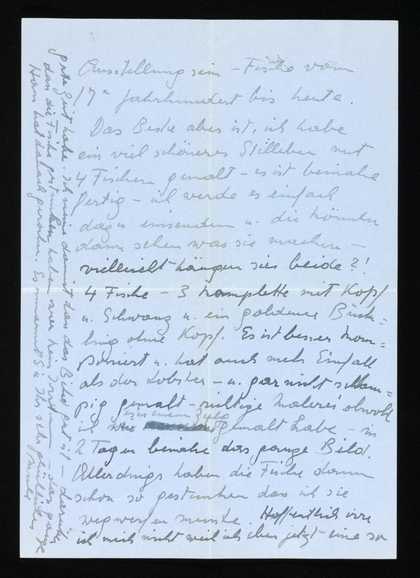 Ausstellung sein – Fische vom
17ten Jahrhundert bis heute.
Das Beste aber ist, ich habe
ein viel schöneres Stilleben mit
4 Fischen gemalt – es ist beinahe
fertig – ich werde es einfach
dazu einsenden u. die können
dann sehen was sie machen –
vielleicht hängen sie beide?!
4 Fische – 3 komplette mit Kopf
u. Schwanz u. ein goldener Bück-
ling ohne Kopf. Es ist besser kom-
poniert u. hat auch mehr Einfall
als der Lobster – u. gar nicht schlam-
pig gemalt – richtige Malerei obwohl
ich wie
in einem Zuge
gemalt habe – in
2 Tagen beinahe das ganze Bild.
Allerdings haben die Fische dann
schon so gestunken dass ich sie
wegwerfen musste. Hoffentlich irre
ich mich nicht weil ich eben jetzt eine so
gute habe. Ich
damit das das Bild gut ist –
das die Fische gestunken haben war kein
Hans hat danach gerochen. Es